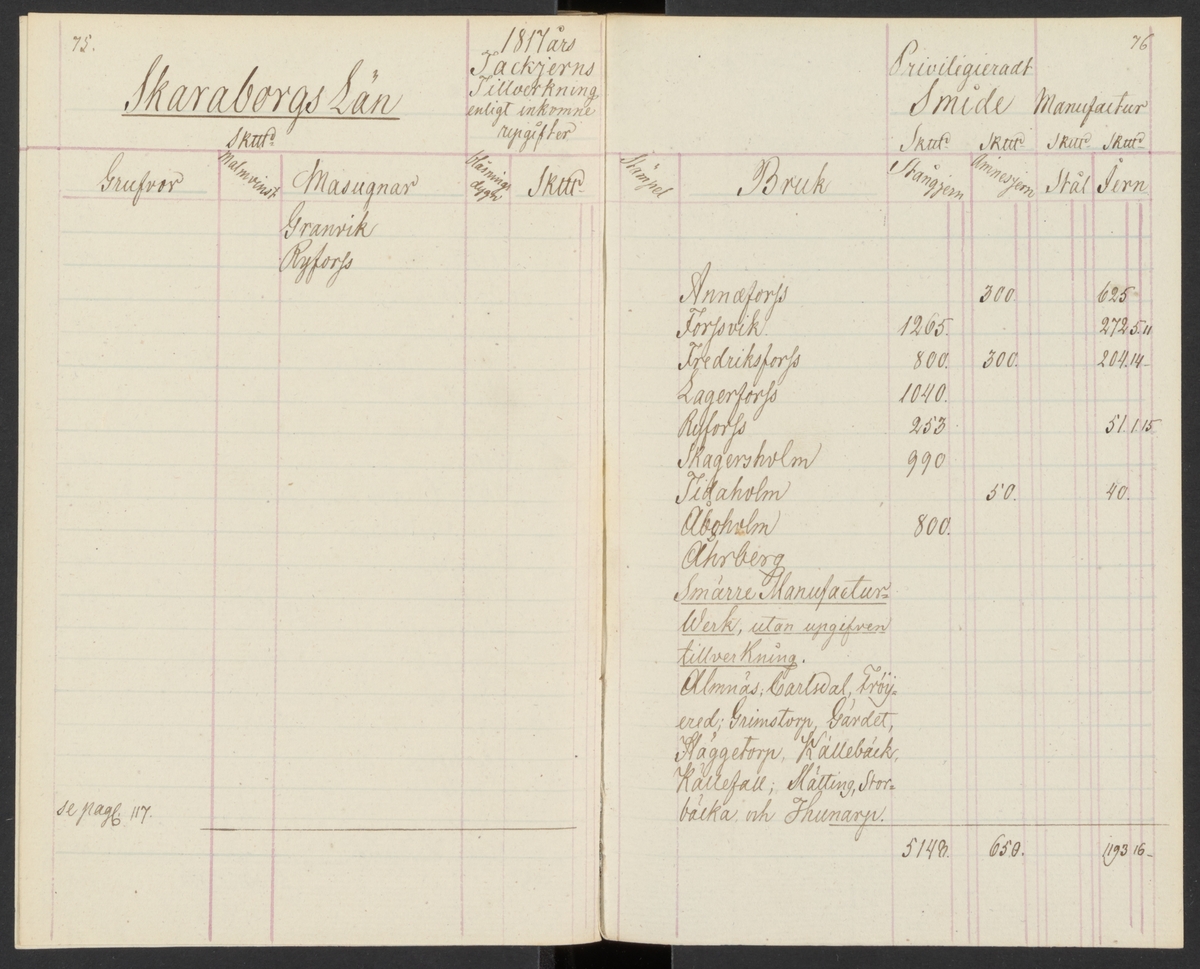 75.
Skaraborgs Län
Skttd
1817 års
Tackjerns
Tillverkning
enligt inkomne
upgifter
Grufvor
Malmvinst
Masugnar
Blåsnings
dygn
Skttd
Granvik
Ryforss
se pag. 117.
76
Priviligieradt
Smide Manufactur
Skttd Skttd Skttd Skttd
Stämpel
Bruk
Stångjern
Ämnesjern
Stål
Jern
Annæforss 300. 625
Forssvik 1265. 272 5. 11
Fredriksforss 800. 300. 204. 14 -
Lagerforss 1040.
Ryforss 253 51. 1. 15
Skagersholm 990
Tidaholm 50. 40.
Åboholm 800.
Åhrberg
Smärre Manufactur-
Werk, utan upgifven
tillverkning.
Almnäs; Carlsdal, Fröj-
ered; Grimstorp, Gärdet,
Häggetorp, Källebäck,
Källefall; Mälting, Stor-
bäcka och Thunarp.
5148. 650. 1193 16 -